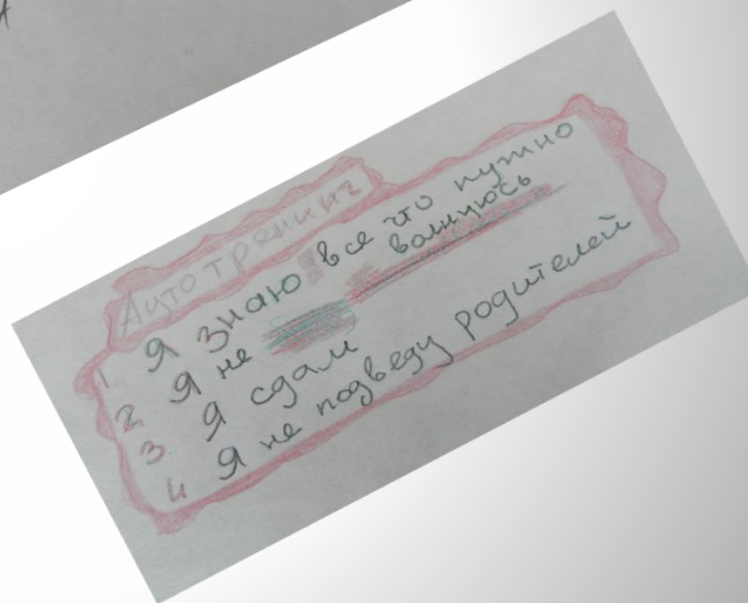 Аутотренинг
1. Я знаю все что нужно
2 Я не волнуюсь
3. Я сдам
4 Я не подведу родителей